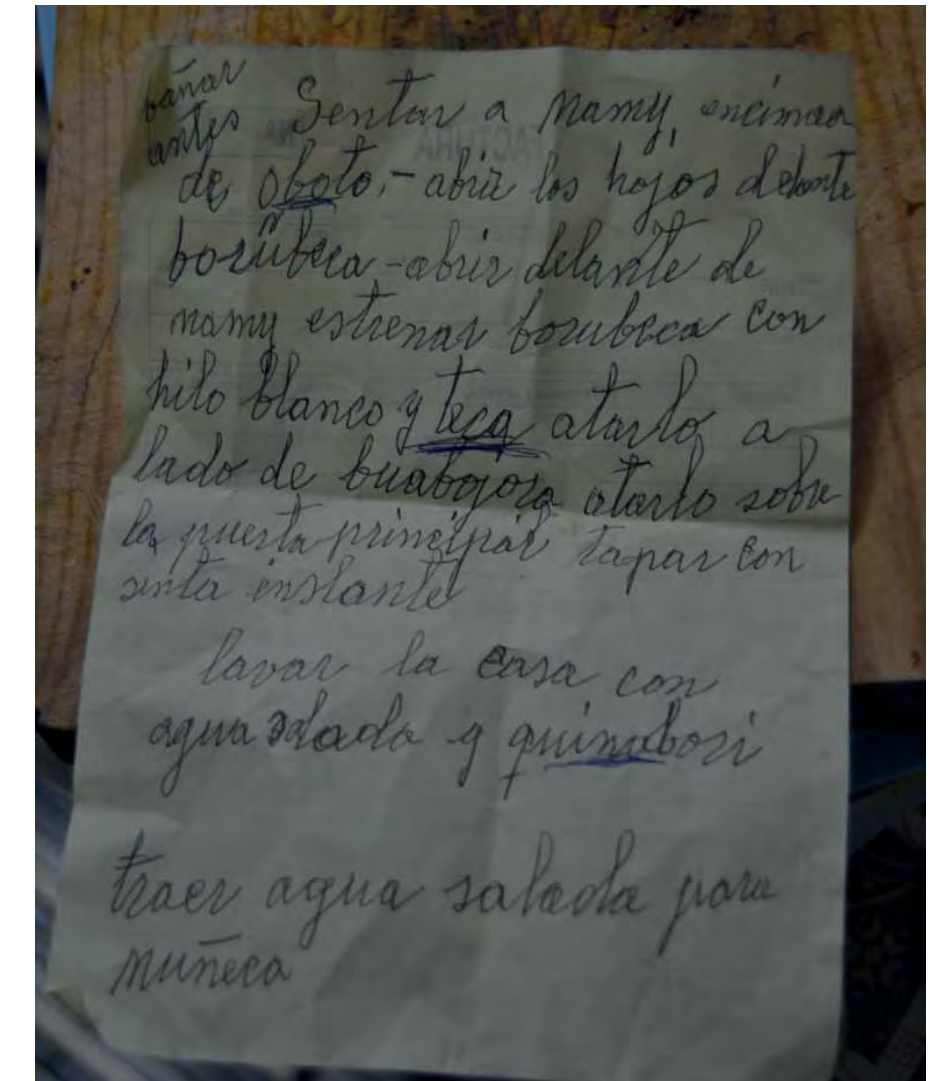 bañar
antes Sentar a Mamy, encimaa
de oboto, - abrir los hojos delante
borúbeca - abrir delante de
mamy estrenar borubeca con
hilo blanco y teca atarlo a
lado de buabojora atarlo sobre
la puerta principal tapar con
sinta instante
lavar la casa con
agua salada y quimabori
traer agua salada para
Muñeca
FACTURA